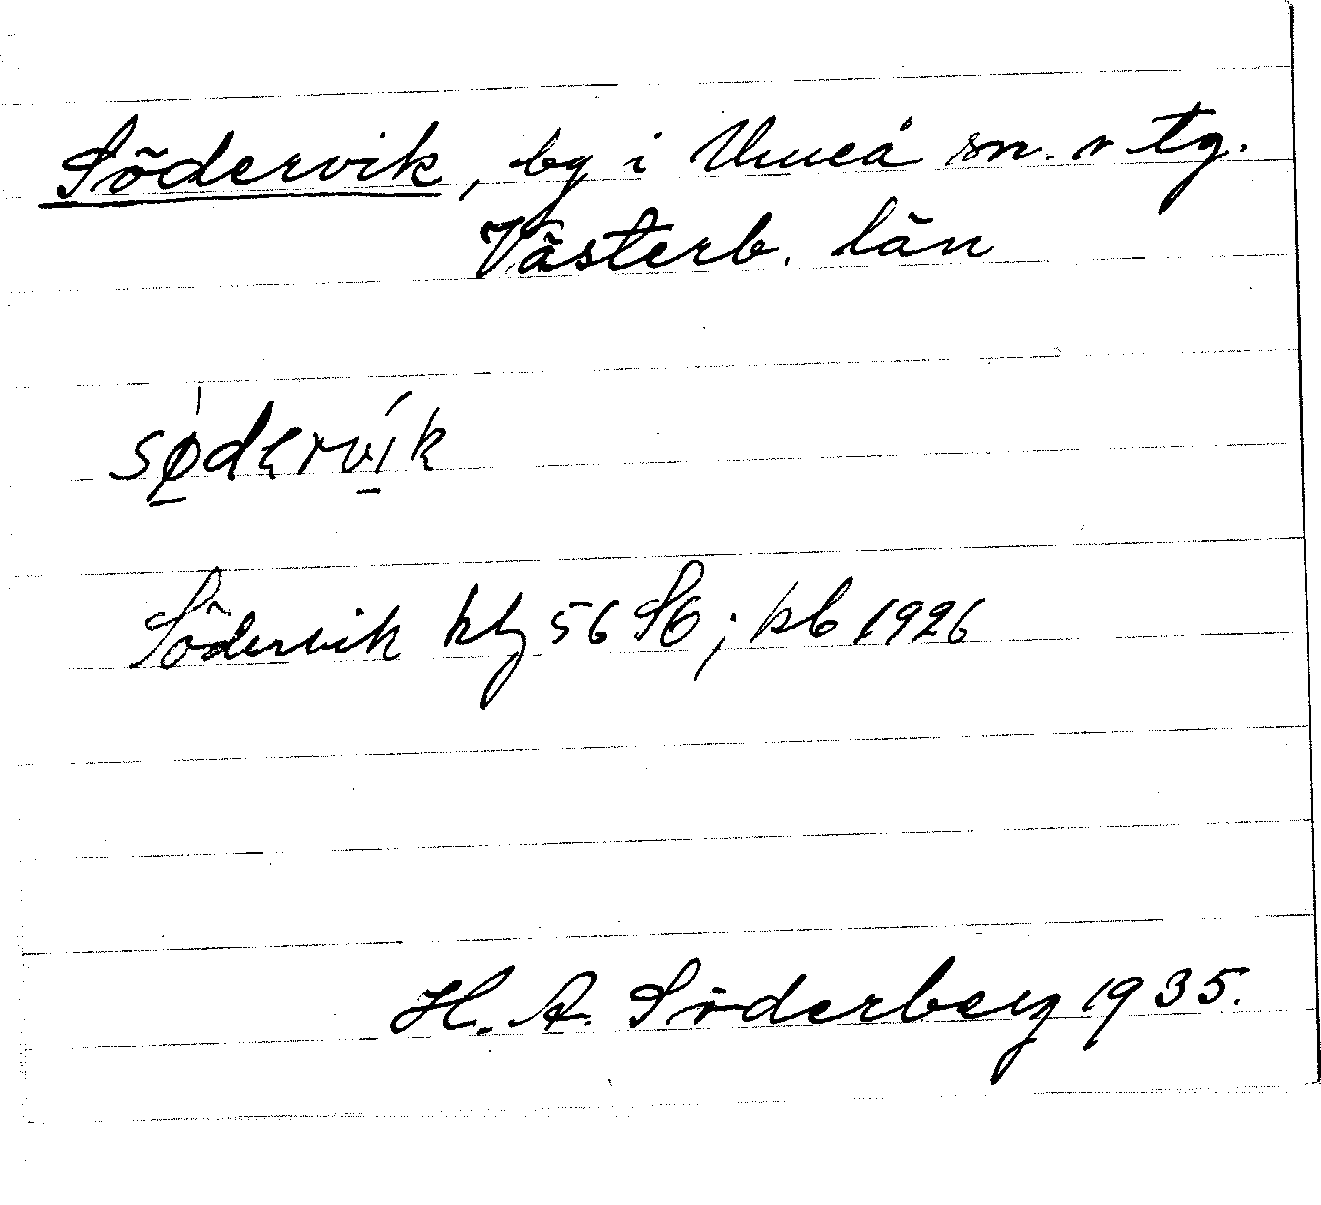 Södervik, by i Umeå sn. o tg.
Västerb. län
sødervik
Södervik 56 S6; kb 1926
H. A. Söderberg 1935.